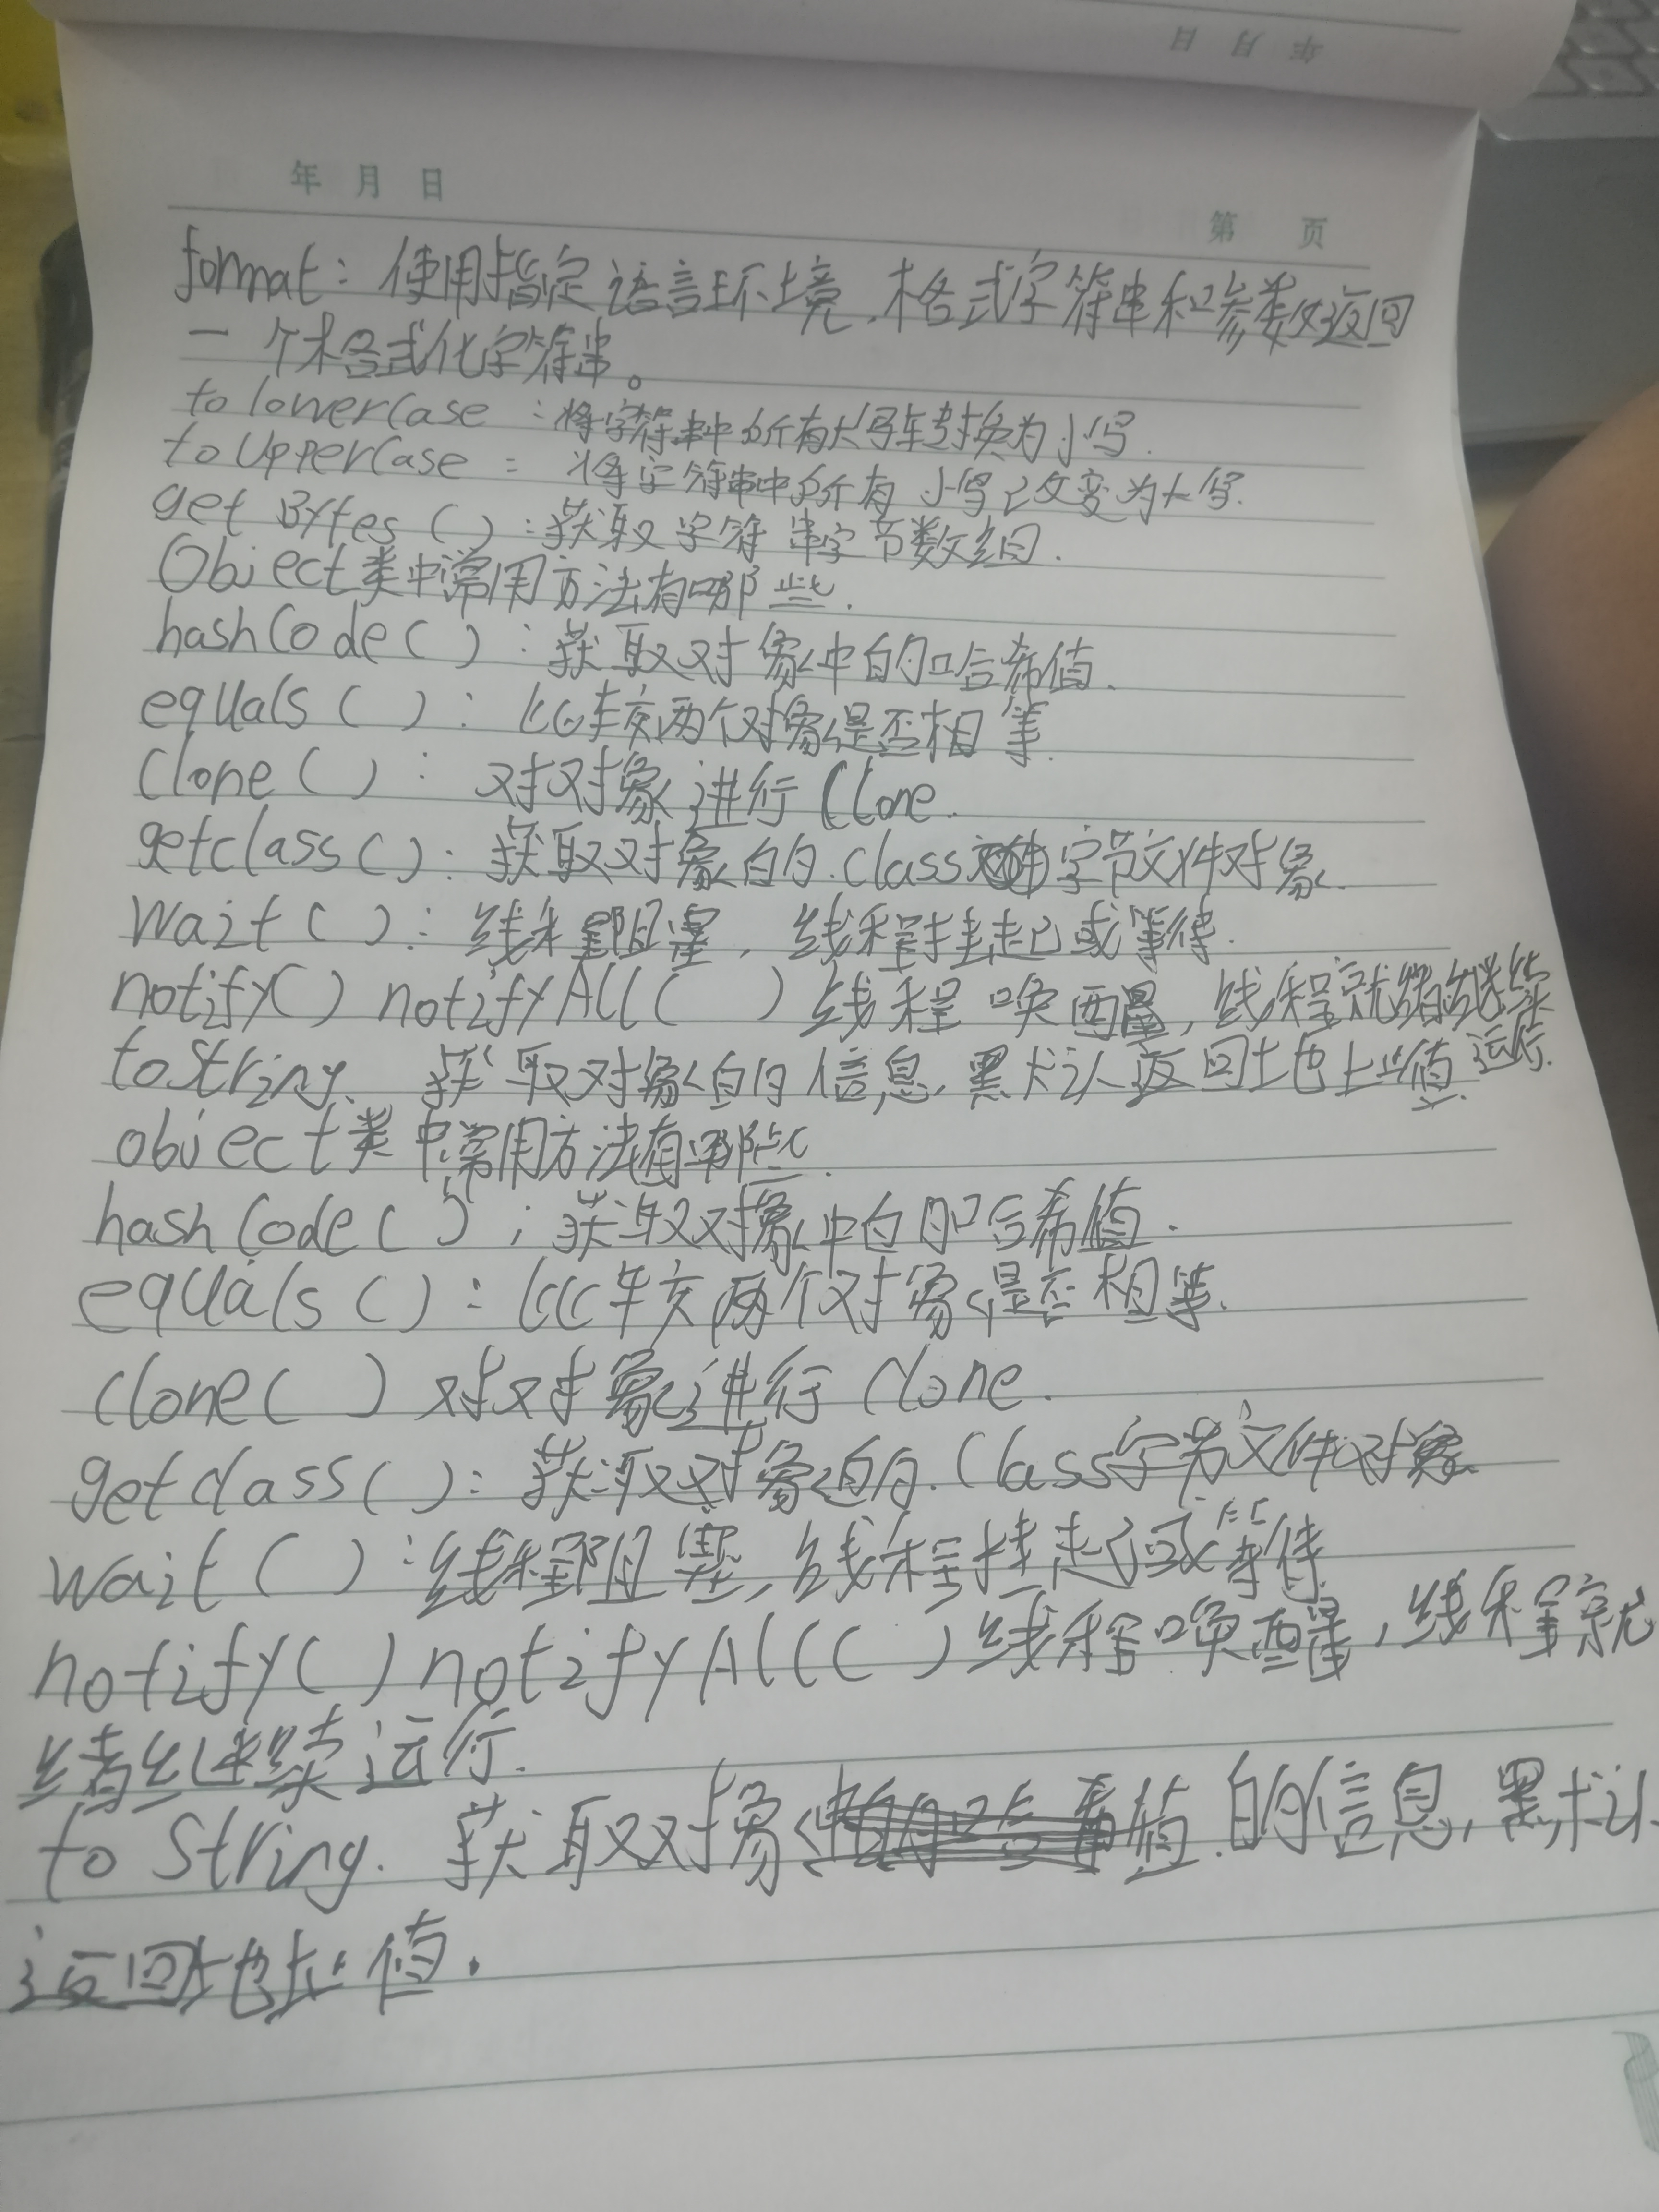 年 月 日
年 月 日
第 页
format：使用指定语言环境，格式字符串和参数返回
一个格式化字符串。
to lowerCase：将字符串中所有大写转换为小写.
to UpperCase：将字符串中所有小写改变为大写.
get Bytes（）：获取字符串字节数组.
Object类中常用方法有哪些.
hashCode（）：获取对象中的哈希值.
equals（）：比较两个对象是否相等.
Clone（）：对对象进行Clone.
getclass（）：获取对象的.class字节文件对象.
Wait（）：线程阻塞，线程挂起或等待.
notify（）notifyAll（）线程唤醒，线程就绪继续
运行.
toString. 获取对象的信息，默认返回地址值.
object类中常用方法有哪些.
hashCode（）：获取对象中的哈希值.
equals（）：比较两个对象是否相等.
Clone（）对对象进行Clone.
getclass（）：获取对象的.Class字节文件对象.
wait（）：线程阻塞，线程挂起或等待.
notify（）notifyAll（）线程唤醒，线程就
绪继续运行.
to String. 获取对象的信息，默认
返回地址值.